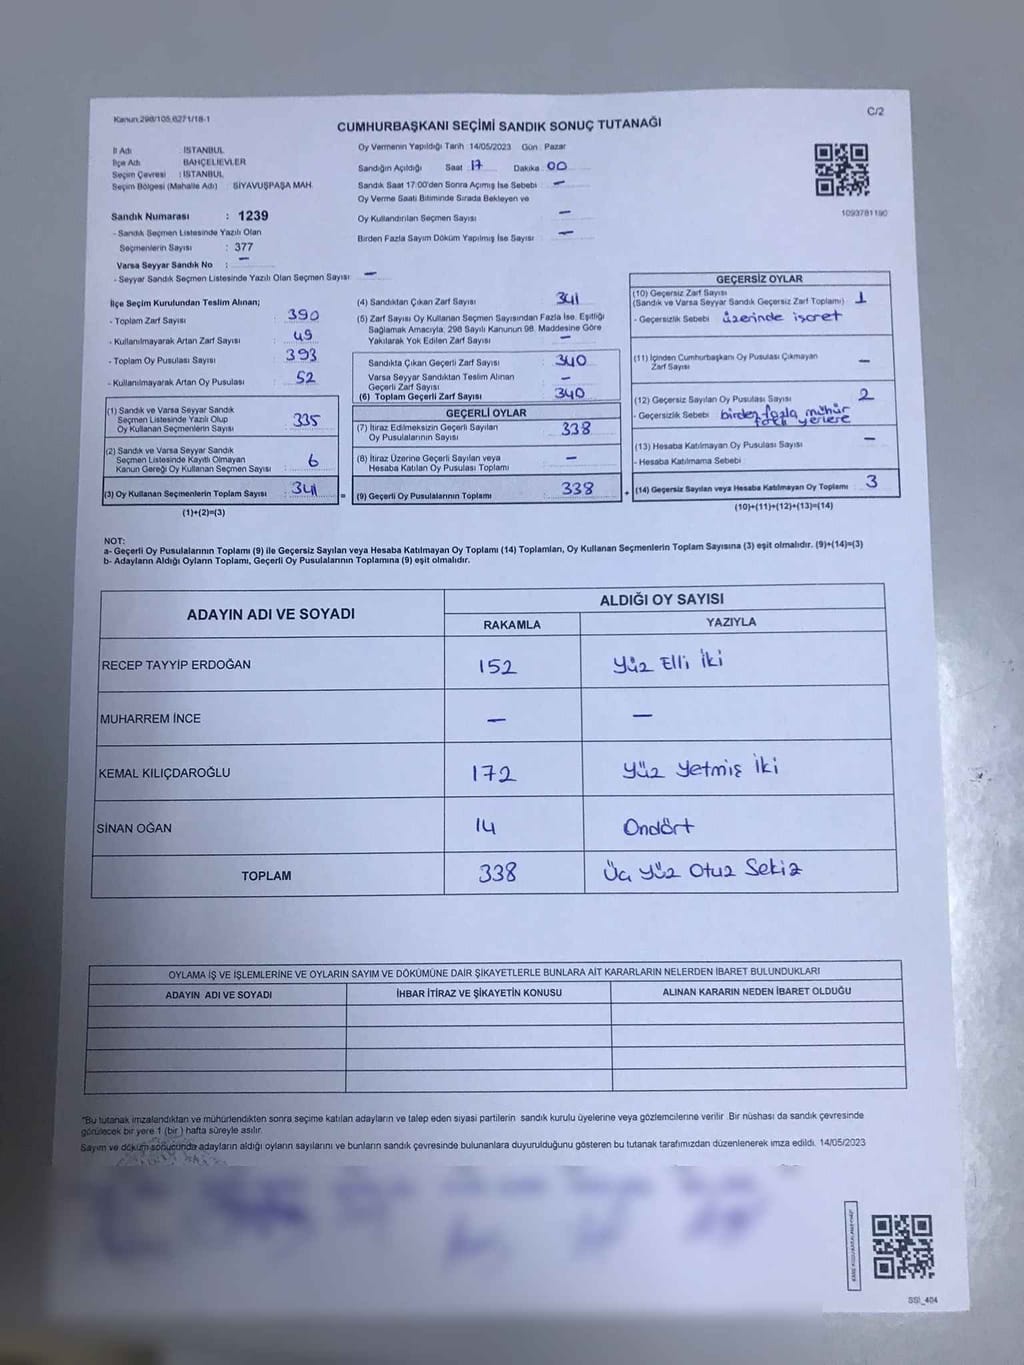 Kanun:298/105,6271/18-1
C/2
CUMHURBAŞKANI SEÇİMİ SANDIK SONUÇ TUTANAĞI
İl Adı : İSTANBUL
İlçe Adı : BAHÇELİEVLER
Seçim Çevresi : İSTANBUL
Seçim Bölgesi (Mahalle Adı) : SİYAVUŞPAŞA MAH.
Oy Vermenin Yapıldığı Tarih :14/05/2023 Gün : Pazar
Sandığın Açıldığı Saat : 17 Dakika : 00
Sandık Saat 17:00'den Sonra Açımış İse Sebebi : —
Oy Verme Saati Bitiminde Sırada Bekleyen ve
Oy Kullandırılan Seçmen Sayısı : —
Birden Fazla Sayım Döküm Yapılmış İse Sayısı : —
1093781190
Sandık Numarası : 1239
- Sandık Seçmen Listesinde Yazılı Olan
Seçmenlerin Sayısı : 377
Varsa Seyyar Sandık No : —
- Seyyar Sandık Seçmen Listesinde Yazılı Olan Seçmen Sayısı : —
İlçe Seçim Kurulundan Teslim Alınan;
- Toplam Zarf Sayısı : 390
- Kullanılmayarak Artan Zarf Sayısı : 49
- Toplam Oy Pusulası Sayısı : 393
- Kullanılmayarak Artan Oy Pusulası : 52
(1) Sandık ve Varsa Seyyar Sandık
Seçmen Listesinde Yazılı Olup
Oy Kullanan Seçmenlerin Sayısı : 335
(2) Sandık ve Varsa Seyyar Sandık
Seçmen Listesinde Kayıtlı Olmayan
Kanun Gereği Oy Kullanan Seçmen Sayısı : 6
(3) Oy Kullanan Seçmenlerin Toplam Sayısı : 341
(1)+(2)=(3)
(4) Sandıktan Çıkan Zarf Sayısı : 341
(5) Zarf Sayısı Oy Kullanan Seçmen Sayısından Fazla İse, Eşitliği
Sağlamak Amacıyla, 298 Sayılı Kanunun 98. Maddesine Göre
Yakılarak Yok Edilen Zarf Sayısı : —
Sandıkta Çıkan Geçerli Zarf Sayısı : 340
Varsa Seyyar Sandıktan Teslim Alınan
Geçerli Zarf Sayısı : —
(6) Toplam Geçerli Zarf Sayısı : 340
GEÇERLİ OYLAR
(7) İtiraz Edilmeksizin Geçerli Sayılan
Oy Pusulalarının Sayısı : 338
(8) İtiraz Üzerine Geçerli Sayılan veya
Hesaba Katılan Oy Pusulası Toplamı : —
= (9) Geçerli Oy Pusulalarının Toplamı : 338
GEÇERSİZ OYLAR
(10) Geçersiz Zarf Sayısı
(Sandık ve Varsa Seyyar Sandık Geçersiz Zarf Toplamı) : 1
- Geçersizlik Sebebi : üzerinde işaret
(11) İçinden Cumhurbaşkanı Oy Pusulası Çıkmayan
Zarf Sayısı : —
(12) Geçersiz Sayılan Oy Pusulası Sayısı : 2
- Geçersizlik Sebebi : birden fazla mühür
farklı yerlere
(13) Hesaba Katılmayan Oy Pusulası Sayısı : —
- Hesaba Katılmama Sebebi :
+ (14) Geçersiz Sayılan veya Hesaba Katılmayan Oy Toplamı : 3
(10)+(11)+(12)+(13)=(14)
NOT:
a- Geçerli Oy Pusulalarının Toplamı (9) ile Geçersiz Sayılan veya Hesaba Katılmayan Oy Toplamı (14) Toplamları, Oy Kullanan Seçmenlerin Toplam Sayısına (3) eşit olmalıdır. (9)+(14)=(3)
b- Adayların Aldığı Oyların Toplamı, Geçerli Oy Pusulalarının Toplamına (9) eşit olmalıdır.
ADAYIN ADI VE SOYADI
ALDIĞI OY SAYISI
RAKAMLA YAZIYLA
RECEP TAYYİP ERDOĞAN 152 Yüz Elli İki
MUHARREM İNCE — —
KEMAL KILIÇDAROĞLU 172 Yüz Yetmiş İki
SİNAN OĞAN 14 Ondört
TOPLAM 338 Üç Yüz Otuz Sekiz
OYLAMA İŞ VE İŞLEMLERİNE VE OYLARIN SAYIM VE DÖKÜMÜNE DAİR ŞİKAYETLERLE BUNLARA AİT KARARLARIN NELERDEN İBARET BULUNDUKLARI
ADAYIN ADI VE SOYADI İHBAR İTİRAZ VE ŞİKAYETİN KONUSU ALINAN KARARIN NEDEN İBARET OLDUĞU
*Bu tutanak imzalandıktan ve mühürlendikten sonra seçime katılan adayların ve talep eden siyasi partilerin sandık kurulu üyelerine veya gözlemcilerine verilir. Bir nüshası da sandık çevresinde
görülecek bir yere 1 (bir ) hafta süreyle asılır.
Sayım ve döküm sonucunda adayların aldığı oyların sayılarını ve bunların sandık çevresinde bulunanlara duyurulduğunu gösteren bu tutanak tarafımızdan düzenlenerek imza edildi. 14/05/2023
SSİ_404